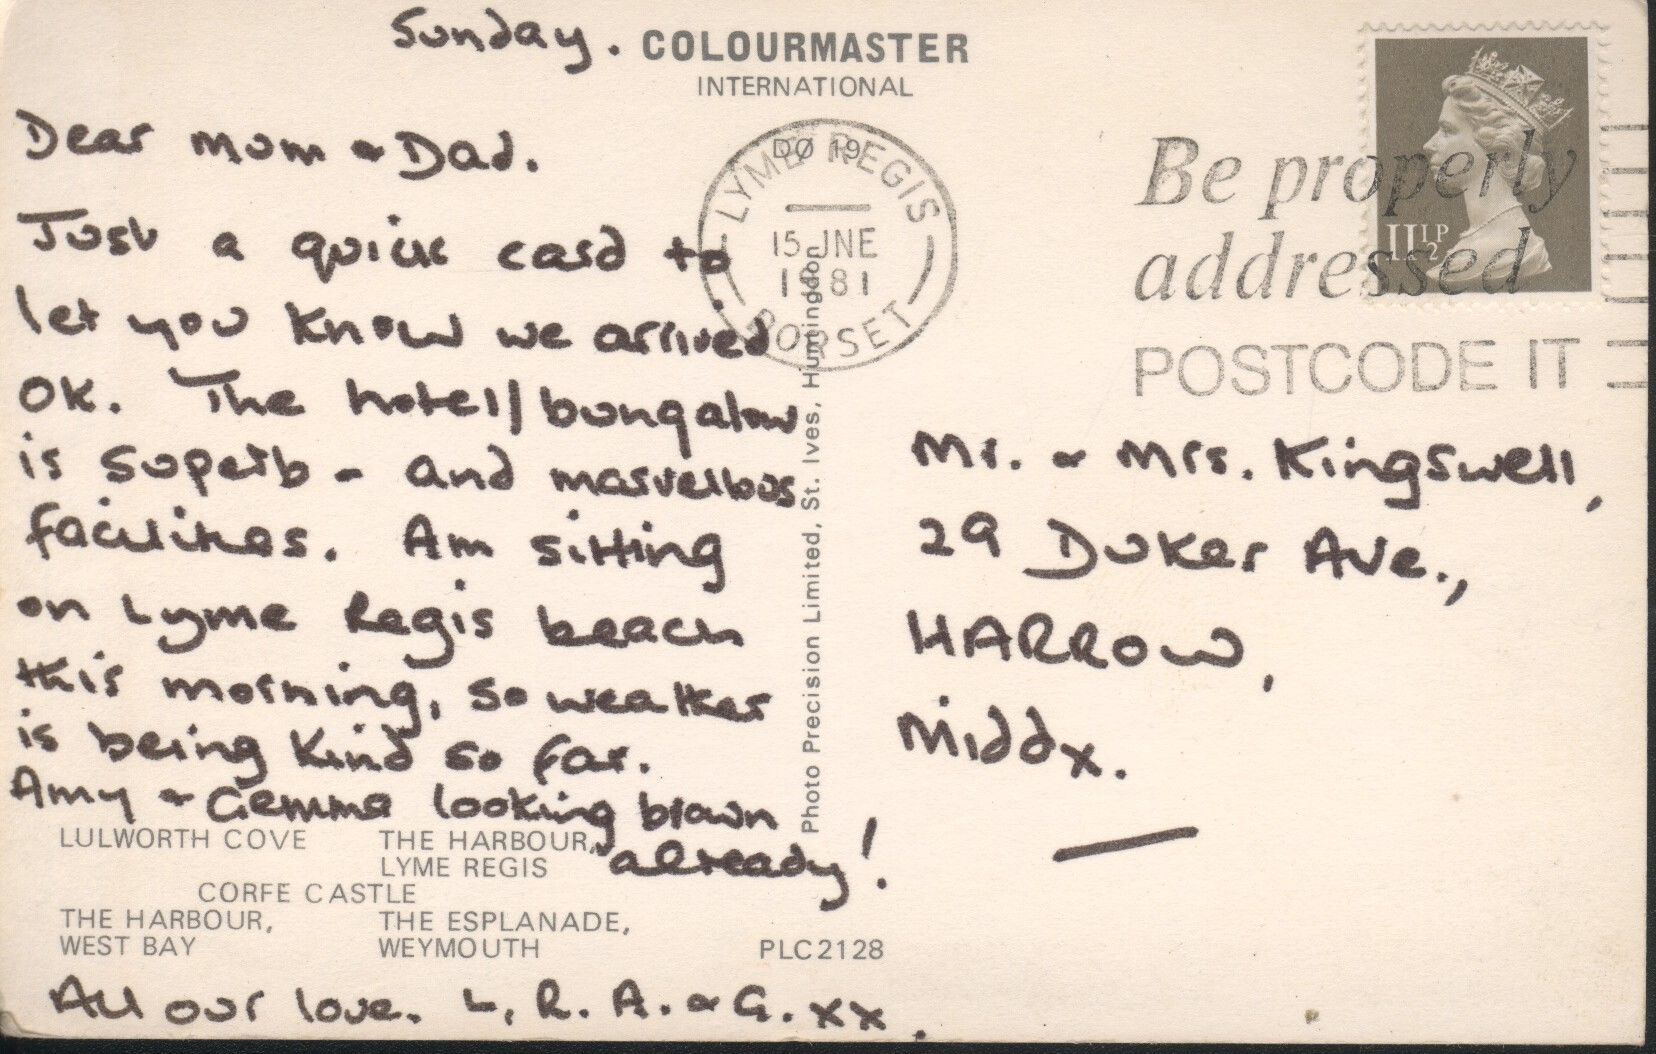 Sunday.
COLOURMASTER
INTERNATIONAL
Dear Mum & Dad.
Just a quick card to
let you know we arrived
OK. The hotel/bungalow
is superb - and marvellous
facilities. Am sitting
on Lyme Regis beach
this morning, so weather
is being kind so far.
Amy & Gemma looking brown
already!
LULWORTH COVE
THE HARBOUR,
LYME REGIS
CORFE CASTLE
THE HARBOUR,
WEST BAY
THE ESPLANADE,
WEYMOUTH
PLC2128
All our love. L, R. A. & G. xx.
Photo Precision Limited, St. Ives, Huntingdon
DØ 19
LYME REGIS
15 JNE
1981
DORSET
Be properly
addressed
POSTCODE IT
11½P
Mr. & Mrs. Kingswell,
29 Duker Ave.,
HARROW,
Middx.